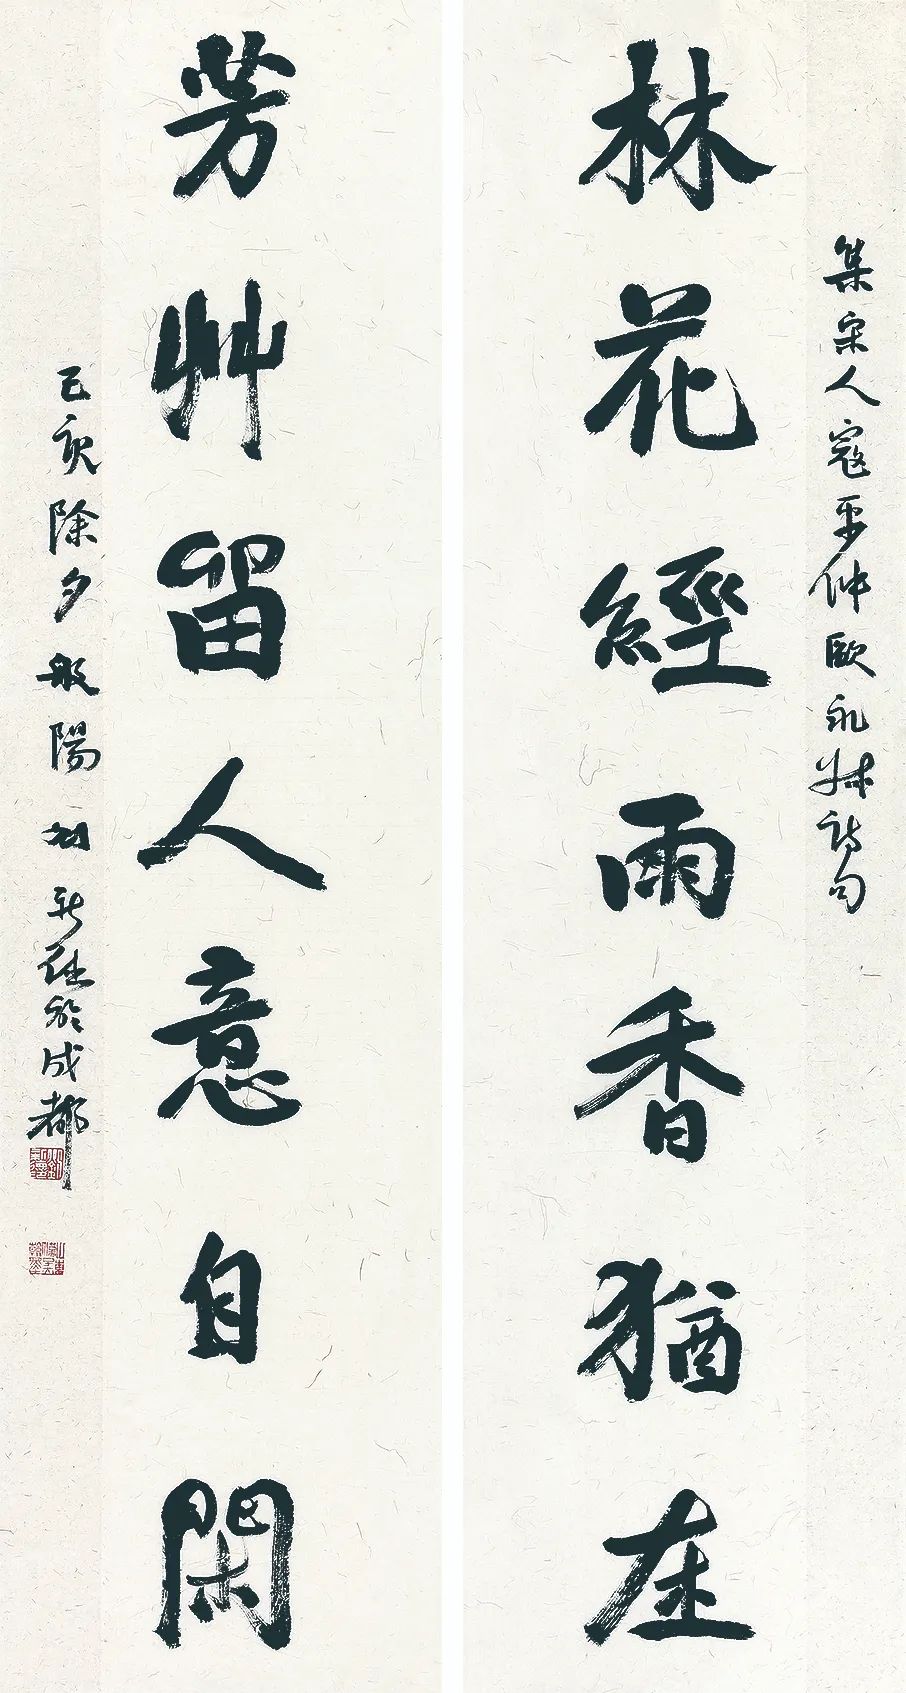 集宋人寇平仲歐永叔詩句
林花經雨香猶在
芳艸留人意自閑
己亥除夕般陽劉新德於成都